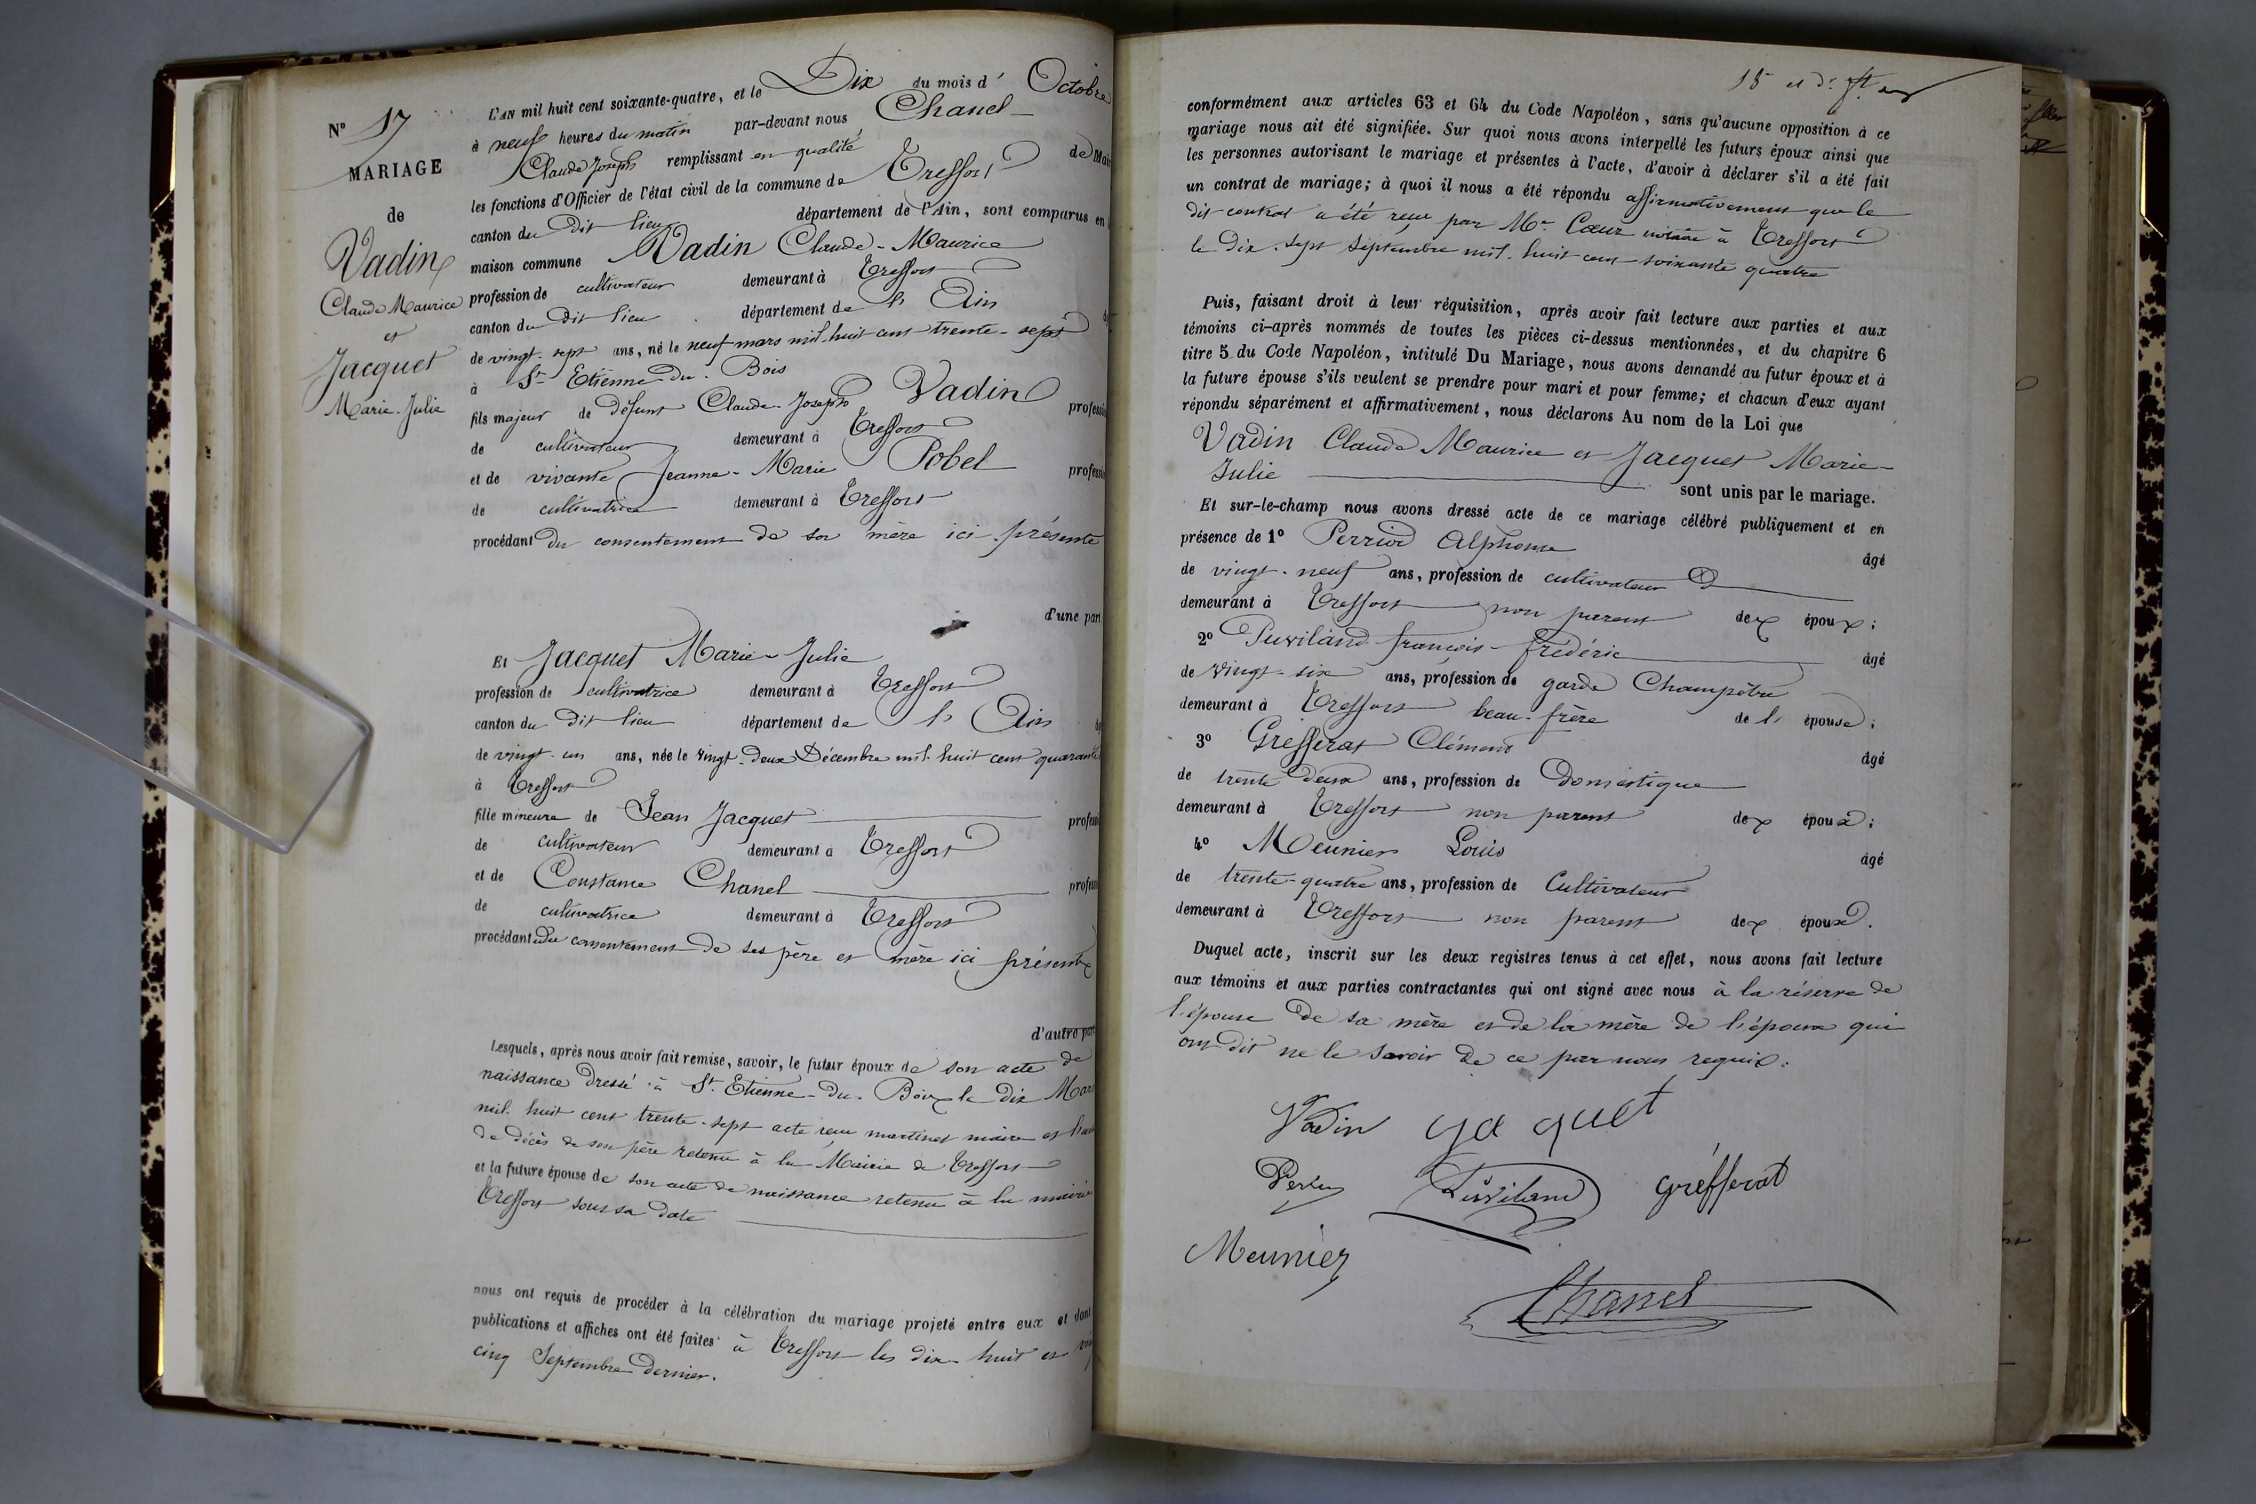 N° 17
MARIAGE
de
Vadin
Claude Maurice
et
Jacquet
Marie-Julie
L'AN mil huit cent soixante-quatre, et le Dix du mois d' Octobre
à neuf heures du matin par-devant nous Chanel
Claude Joseph remplissant en qualité de Mai
les fonctions d'Officier de l'état civil de la commune de Treffort
canton du dit lieu département de l'Ain, sont comparus en
maison commune Vadin Claude-Maurice
profession de cultivateur demeurant à Treffort
canton du dit lieu département de l'Ain
de vingt-sept ans, né le neuf mars mil huit cent trente-sept
à St Etienne-du-Bois
fils majeur de défunt Claude-Joseph Vadin professio
de cultivateur demeurant à Treffort
et de vivante Jeanne-Marie Pobel professio
de cultivatrice demeurant à Treffort
procédant du consentement de sa mère ici présente
d'une part.
Et Jacquet Marie-Julie
profession de cultivatrice demeurant à Treffort
canton du dit lieu département de l'Ain
de vingt-un ans, née le vingt-deux Décembre mil huit cent quarante
à Treffort
fille mineure de Jean Jacquet profess
de cultivateur demeurant à Treffort
et de Constance Chanel profess
de cultivatrice demeurant à Treffort
procédant du consentement de ses père et mère ici présents
d'autre part
Lesquels, après nous avoir fait remise, savoir, le futur époux de son acte de
naissance dressé à St Etienne-du-Bois le dix Mars
mil huit cent trente-sept acte reçu martinet maire et
de décès de son père retenu à la Mairie de Treffort
et la future épouse de son acte de naissance retenu à la mairie
Treffort sous sa date
nous ont requis de procéder à la célébration du mariage projeté entre eux et dont
publications et affiches ont été faites à Treffort les dix-huit et
cinq Septembre dernier.
conformément aux articles 63 et 64 du Code Napoléon, sans qu'aucune opposition à ce
mariage nous ait été signifiée. Sur quoi nous avons interpellé les futurs époux ainsi que
les personnes autorisant le mariage et présentes à l'acte, d'avoir à déclarer s'il a été fait
un contrat de mariage; à quoi il nous a été répondu affirmativement que le
dit contrat a été reçu par Me Cœur notaire à Treffort
le dix-sept septembre mil huit cent soixante quatre
Puis, faisant droit à leur réquisition, après avoir fait lecture aux parties et aux
témoins ci-après nommés de toutes les pièces ci-dessus mentionnées, et du chapitre 6
titre 5 du Code Napoléon, intitulé Du Mariage, nous avons demandé au futur époux et à
la future épouse s'ils veulent se prendre pour mari et pour femme; et chacun d'eux ayant
répondu séparément et affirmativement, nous déclarons Au nom de la Loi que
Vadin Claude Maurice et Jacquet Marie-
Julie sont unis par le mariage.
Et sur-le-champ nous avons dressé acte de ce mariage célébré publiquement et en
présence de 1° Alphonse âgé
de vingt-neuf ans, profession de cultivateur
demeurant à Treffort non parent dex époux;
2° Puvilland françois-frédéric âgé
de vingt-six ans, profession de garde Champêtre
demeurant à Treffort beau-frère de l' épouse;
3° Grefferat Clément âgé
de trente deux ans, profession de Domestique
demeurant à Treffort non parent dex époux;
4° Meunier Louis âgé
de trente-quatre ans, profession de Cultivateur
demeurant à Treffort non parent dex époux.
Duquel acte, inscrit sur les deux registres tenus à cet effet, nous avons fait lecture
aux témoins et aux parties contractantes qui ont signé avec nous à la réserve de
l'épouse de sa mère et de la mère de l'époux qui
ont dit ne le savoir de ce par nous requis.
Vadin ya quet
Puviland grefferat
Meunier
Chanel